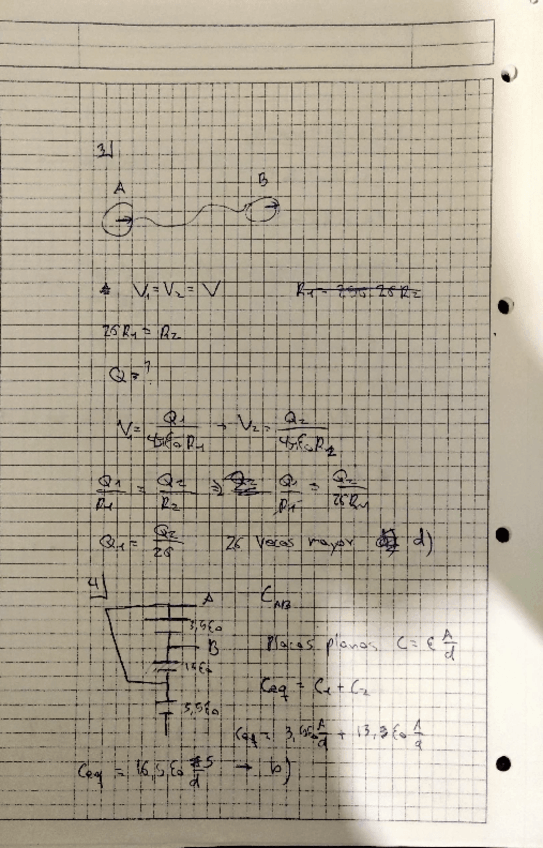 3)
A B
V₁ = V₂ = V
26R₁ = R₂
Q = ?
V₁ = Q₁/4πε₀R₁ → V₂ = Q₂/4πε₀R₂
Q₁/R₁ = Q₂/R₂ ⇒ Q₁/R₁ = Q₂/26R₁
Q₁ = Q₂/26 26 veces mayor d)
4)
A C_AB
3,5ε₀
Placas planas C = ε A/d
B
Ceq = C₁ + C₂
5,5ε₀
Ceq = 3,5ε₀ A/d + 13,3ε₀ A/d
Ceq = 16,5ε₀ → b)